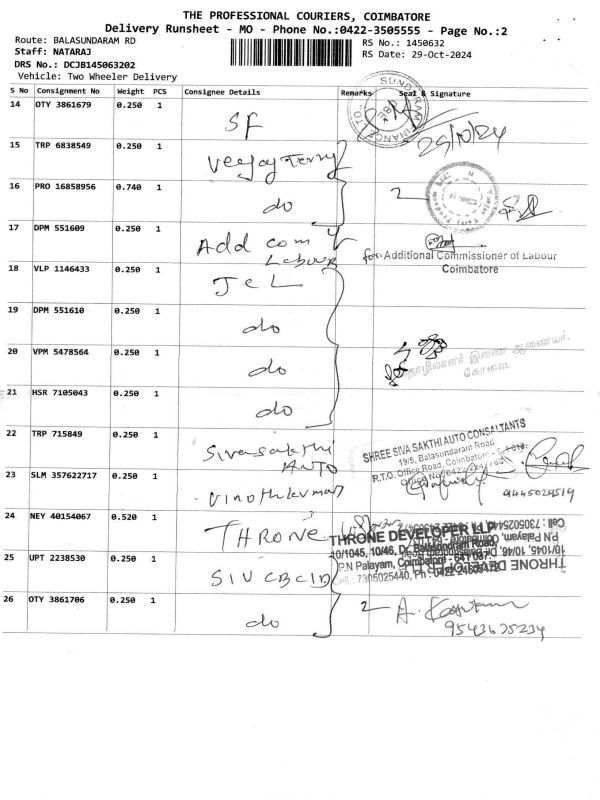 THE PROFESSIONAL COURIERS, COIMBATORE
Delivery Runsheet - MO - Phone No.:0422-3505555 - Page No.:2
Route: BALASUNDARAM RD
RS No.: 1450632
Staff: NATARAJ
RS Date: 29-Oct-2024
DRS No.: DCJB145063202
Vehicle: Two Wheeler Delivery
S No Consignment No Weight PCS Consignee Details Remarks Seal & Signature
14 OTY 3861679 0.250 1 SF
SUNDARAM FINANCE LTD
29/10/24
15 TRP 6838549 0.250 1
16 PRO 16858956 0.740 1 do 2
17 DPM 551609 0.250 1 Add com
Labour
for Additional Commissioner of Labour
Coimbatore
18 VLP 1146433 0.250 1 JCL
19 DPM 551610 0.250 1 do
20 VPM 5478564 0.250 1 do
இணை ஆணையர்,
கோவை
21 HSR 7105043 0.250 1 do
22 TRP 715849 0.250 1 Sivasakthi
AUTO
SHREE SIVA SAKTHI AUTO CONSALTANTS
19/5, Balasundaram Road,
R.T.O. Office Road, Coimbatore
23 SLM 357622717 0.250 1 Vinothkumar
9445029519
24 NEY 40154067 0.520 1 THRONE
THRONE DEVELOPER LLP
10/1045, 10/46, Dr. Balasundram Road,
P.N Palayam, Coimbatore - 641 037
Cell : 7305025440, Ph : 0422
25 UPT 2238530 0.250 1 SIV CBCID
26 OTY 3861706 0.250 1 do 2
9543635234